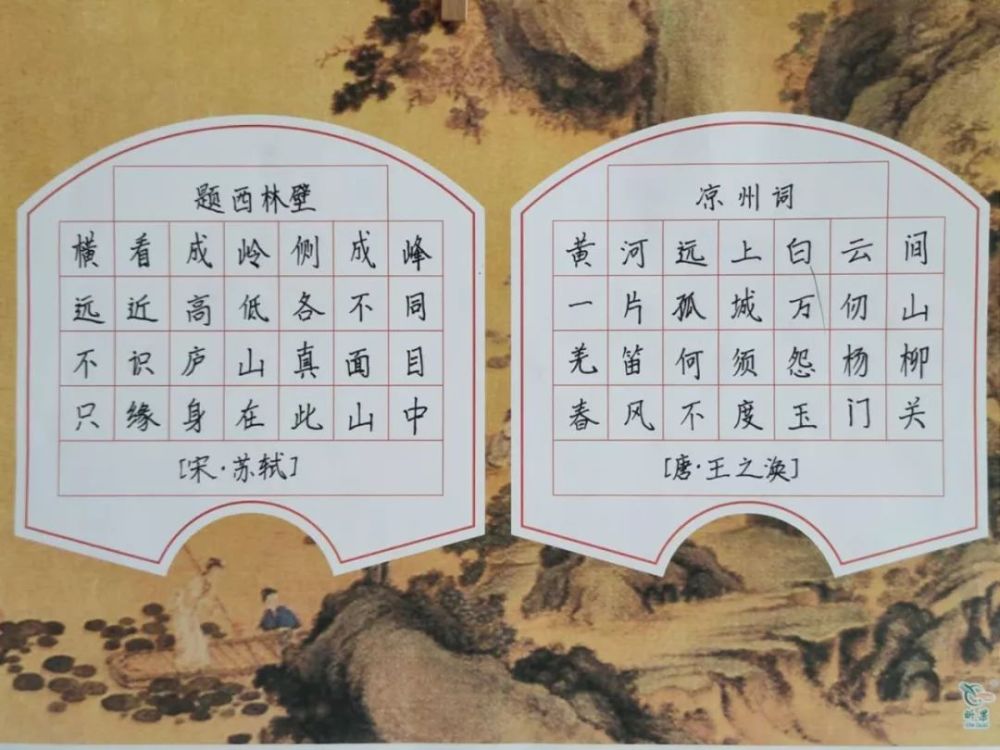 题西林壁
横看成岭侧成峰
远近高低各不同
不识庐山真面目
只缘身在此山中
[宋·苏轼]
凉州词
黄河远上白云间
一片孤城万仞山
羌笛何须怨杨柳
春风不度玉门关
[唐·王之涣]